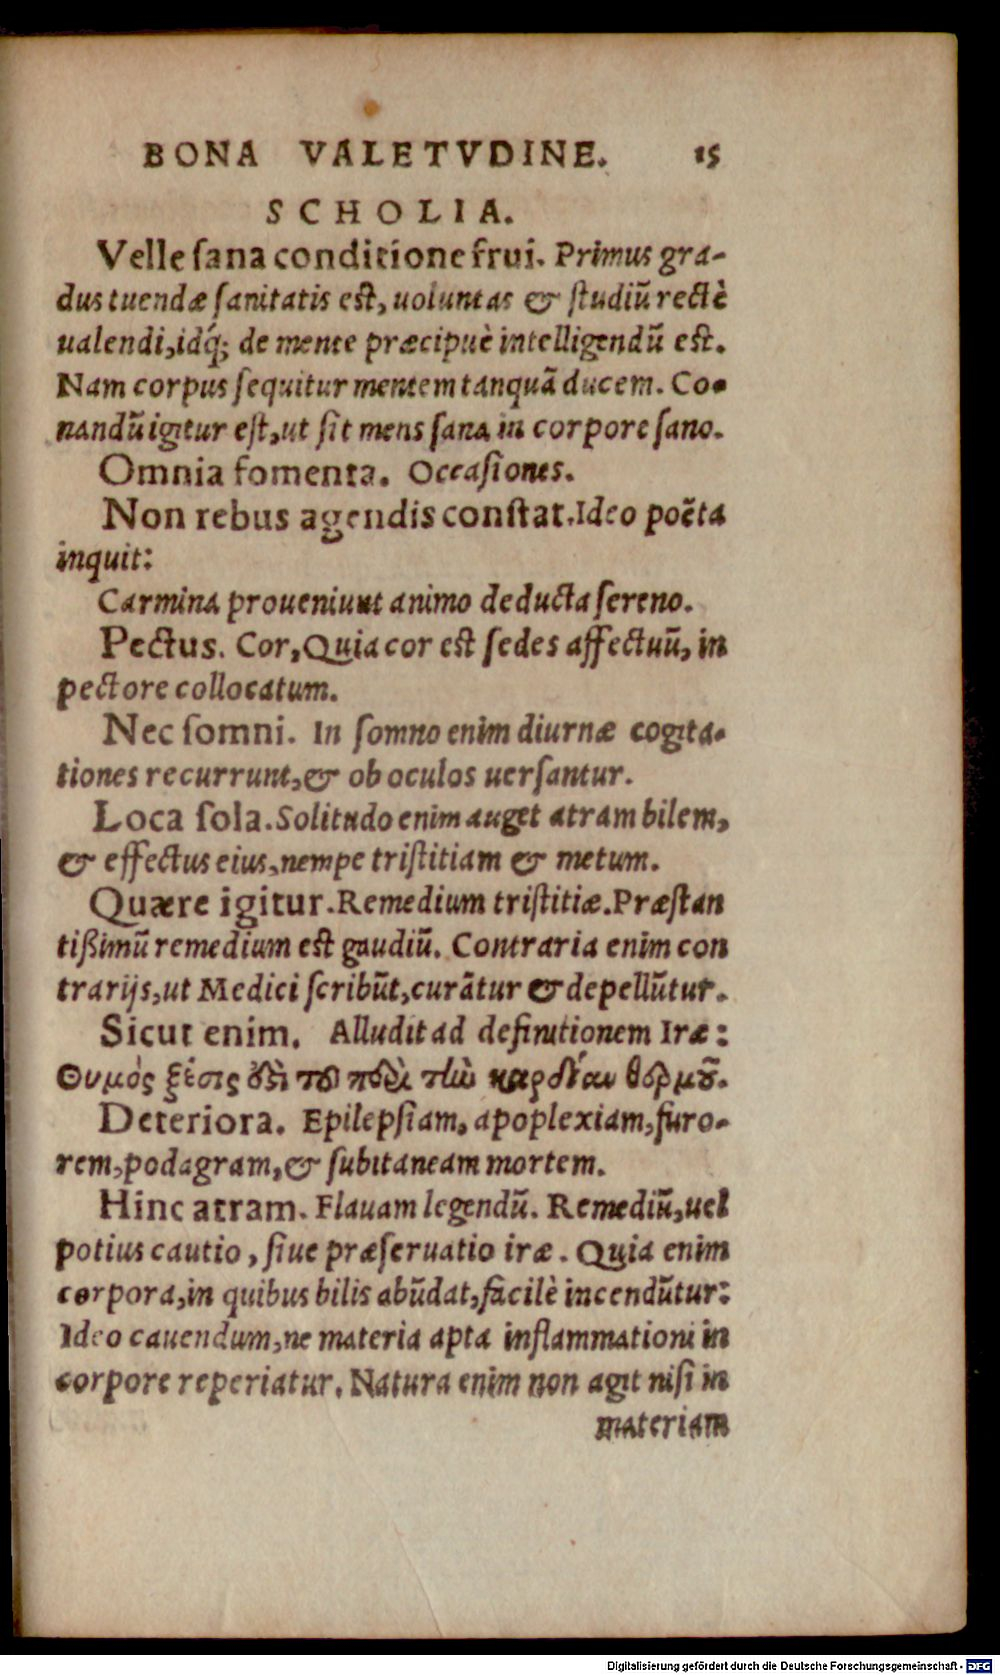 BONA VALETVDINE. 15
SCHOLIA.
Velle ſana conditione frui. Primus gra-
dus tuendæ ſanitatis eſt, uoluntas & ſtudiū rectè
ualendi, idq́; de mente præcipuè intelligendū eſt.
Nam corpus ſequitur mentem tanquā ducem. Co-
nandū igitur eſt, ut ſit mens ſana in corpore ſano.
Omnia fomenta. Occaſiones.
Non rebus agendis conſtat. Ideo poëta
inquit:
Carmina proueniunt animo deducta ſereno.
Pectus. Cor, Quia cor eſt ſedes affectuū, in
pectore collocatum.
Nec ſomni. In ſomno enim diurnæ cogita-
tiones recurrunt, & ob oculos uerſantur.
Loca ſola. Solitudo enim auget atram bilem,
& effectus eius, nempe triſtitiam & metum.
Quære igitur. Remedium triſtitiæ. Præſtan
tißimū remedium eſt gaudiū. Contraria enim con
trarijs, ut Medici ſcribūt, curātur & depellūtur.
Sicut enim. Alludit ad definitionem Iræ:
Θυμός ζέσις ὅζι τοῦ περὶ τὴν καρδίαν θερμοῦ.
Deteriora. Epilepſiam, apoplexiam, furo-
rem, podagram, & ſubitaneam mortem.
Hinc atram. Flauam legendū. Remediū, uel
potius cautio, ſiue præſeruatio iræ. Quia enim
corpora, in quibus bilis abūdat, facilè incendūtur:
Ideo cauendum, ne materia apta inflammationi in
corpore reperiatur. Natura enim non agit niſi in
materiam
Digitalisierung gefördert durch die Deutsche Forschungsgemeinschaft - DFG